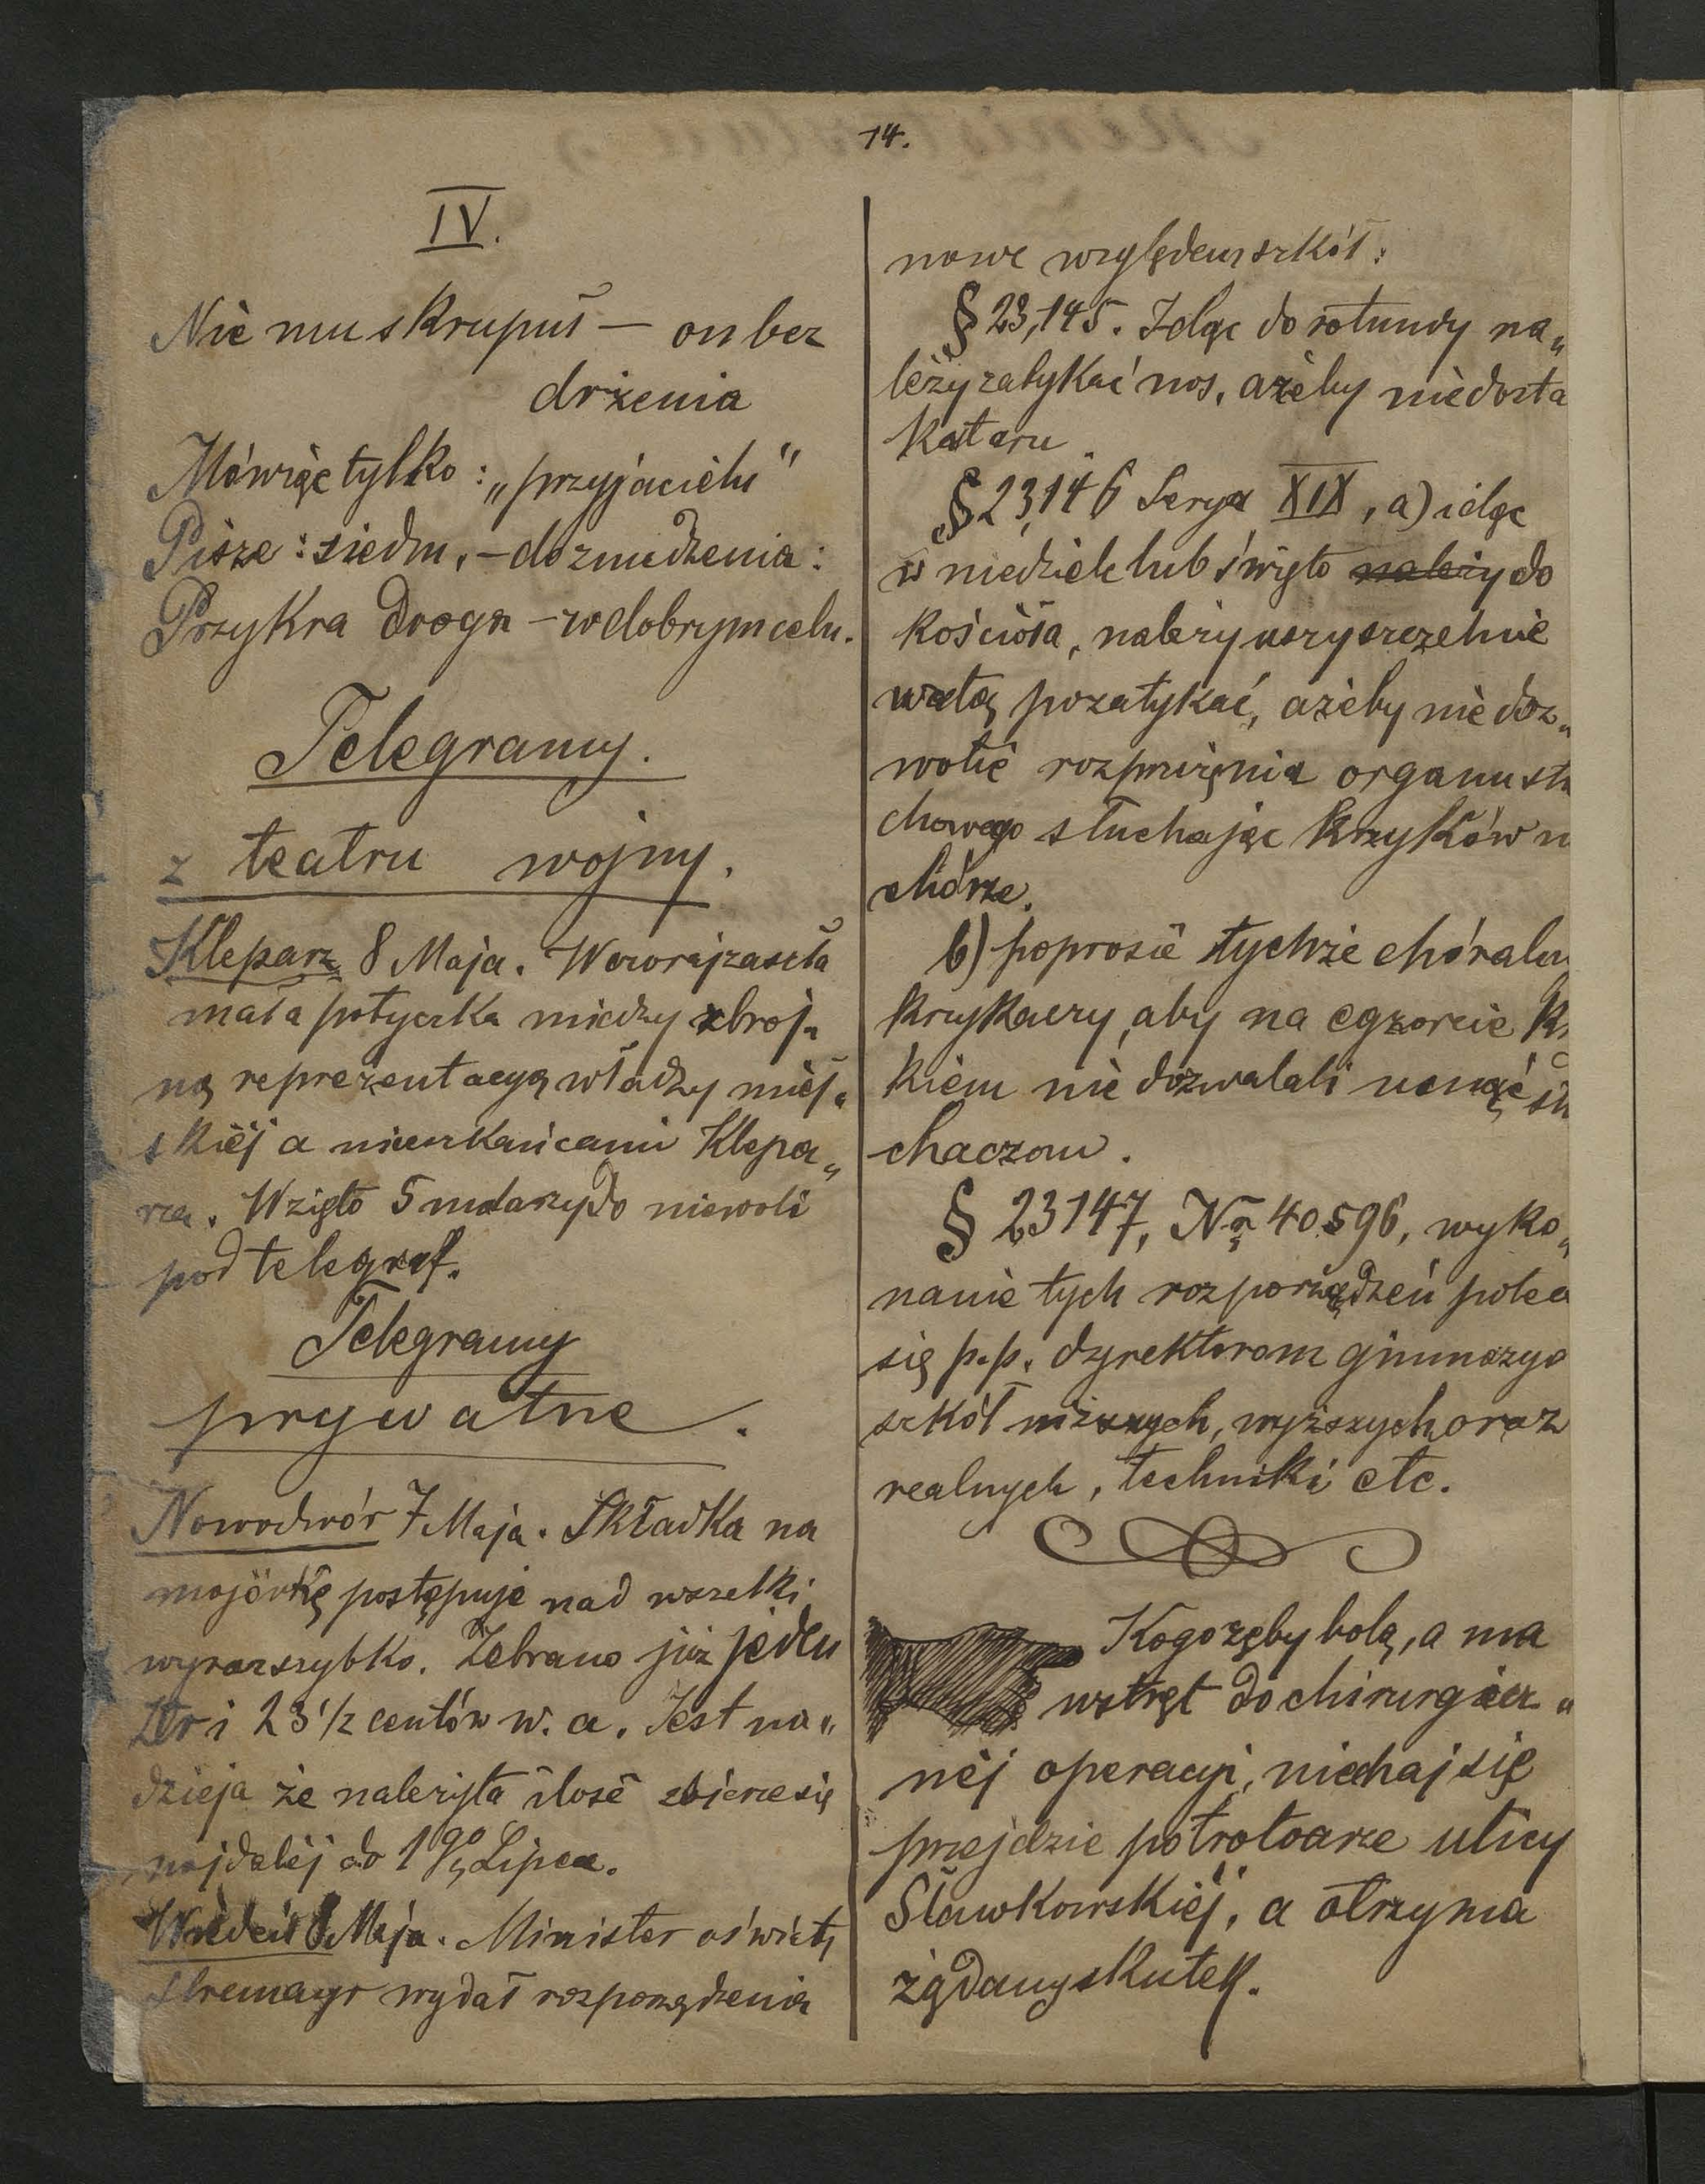 14.
IV.
Nie mu skrupuł — on bez
drżenia
Mówiąc tylko: „przyjacielu"
Pisze: siedm, — do znudzenia:
Przykra droga — w dobrym celu.
Telegramy.
z teatru wojny.
Kleparz 8 Maja. Wczoraj zaszła
mała potyczka miedzy zbroj„
ną reprezentacyą władzy miej„
skiéj a mieszkańcami Klepa„
rza. Wzięto 5 do niewoli
pod telegraf.
Telegramy
prywatne.
Nowodwór 7 Maja. Składka na
majówkę postępuje nad wszelki
wyraz szybko. Zebrano już jeden
złr i 23 1/2 centów w. a. Jest na„
dzieja że należyta ilość zbierze się
najdaléj do 1go Lipca.
Wiedeń 8 Maja. Minister oświaty
Stremayr wydał rozporządzenia
nowe względem szkół:
§ 23,145. Idąc do rotundy na„
leży zatykać nos, ażeby nie dosta
kataru
§ 23,146 Serya XIX, a) idąc
w niedziele lub święto należy do
kościoła, należy uszy szczelnie
watą pozatykać, ażeby nie doz„
wolić rozpuięnia organu słu
chowego słuchając krzyków n
chórze.
b) poprosić tychże chóraln
krzykaczy, aby na egzorcie k
kiem nie dozwalali usnąć słu
chaczom.
§ 23147, No 40596, wyko„
nanie tych rozporządzeń poleca
się p.p. dyrektorom gimnazyo
szkół niższych, wyższych oraz
realnych, techniki etc.
Kogo zęby bolą, a ma
wstręt do chirurgicz„
néj operacyi, niechaj się
przejdzie po trotoarze ulicy
Sławkowskiéj, a otrzyma
żądany skutek.